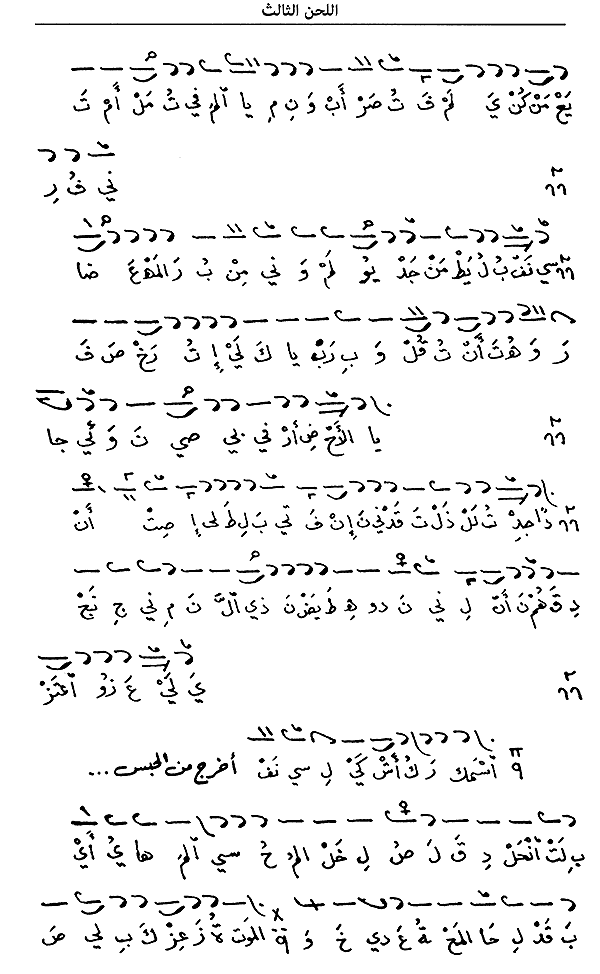 اللحن الثالث
يَعْ مَنْ كُنْ يَ لَمْ فَ تُ صَرْ أَبْ وَ نِ مِ يا اَلْمُ في تُ مَلْ أَمْ تَ
ني فُ رِ
سي نَفْ بُ لُ يَطْ مَنْ جَدْ يو لَمْ وَ ني مِنْ بُ رَ المَهْ عَ ضا
رَ وَ هُتَ أَنْ تُ قُلْ وَ بِ رَبْ يا كَ لَيْ إِ تُ رَخْ صَ فَ
يا ضِ أَرْ في بي صي نَ وَ ئي جا
ذا جِدْ تُ لَلْ ذَلْ تَ قَدْ ني نَ إِنْ فَ تي بَ لِ طَ لى إِ صِتْ أَنْ
دِ قَ هُمْ نَ أَنْ لِ ني نَ دو هِ طَ يَضْ نَ ذي الَّ نَ مِ ني جِ نَجْ
يَ لَيْ عَ زو اعْتَزْ
اسْمِك رَ كُ أَشْ كَيْ لِ سي نَفْ أخرج من الحبس...
بِ لَتْ اَنْحَلْ دِ قَ لَ صُ لِ خَلْ المُ حُ سي المَ ها يُ أَيْ
بَ قَدْ لِ حَا المَحْ ةُ عَ دي خَ وَ المَوْتِ ةُ زَ عِزْ كَ بِ لي صَ